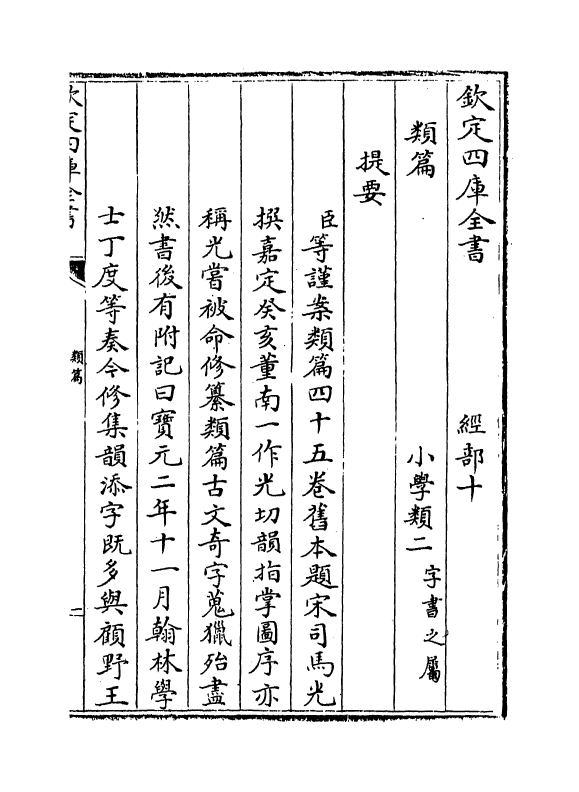 欽定四庫全書 經部十
類篇 小學類二字書之屬
提要
臣等謹案類篇四十五卷舊本題宋司馬光
撰嘉定癸亥董南一作光切韻指掌圖序亦
稱光嘗被命修纂類篇古文奇字蒐獵殆盡
然書後有附記曰寶元二年十一月翰林學
士丁度等奏今修集韻添字既多與顧野王
欽定四庫全書
類篇